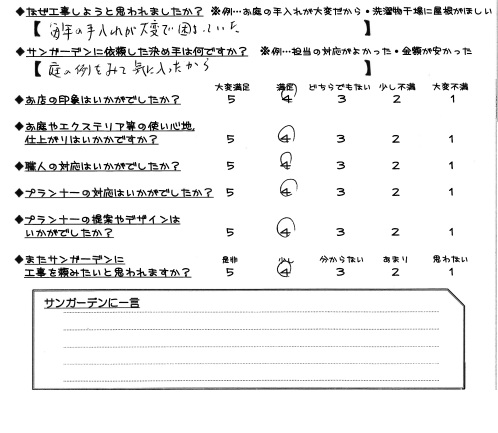 ◆なぜ工事しようと思われましたか？ ※例…お庭の手入れが大変だから・洗濯物干場に屋根がほしい
【毎年の手入れが大変で困っていた】
◆サンガーデンに依頼した決め手は何ですか？ ※例…担当の対応がよかった・金額が安かった
【庭の例をみて気に入ったから】
大変満足 満足 どちらでもない 少し不満 大変不満
◆お店の印象はいかがでしたか？ 5 4 3 2 1
◆お庭やエクステリア等の使い心地、
仕上がりはいかかですか？ 5 4 3 2 1
◆職人の対応はいかがでしたか？ 5 4 3 2 1
◆プランナーの対応はいかがでしたか？ 5 4 3 2 1
◆プランナーの提案やデザインは
いかがでしたか？ 5 4 3 2 1
◆またサンガーデンに 是非 少し 分からない あまり 思わない
工事を頼みたいと思われますか？ 5 4 3 2 1
サンガーデンに一言